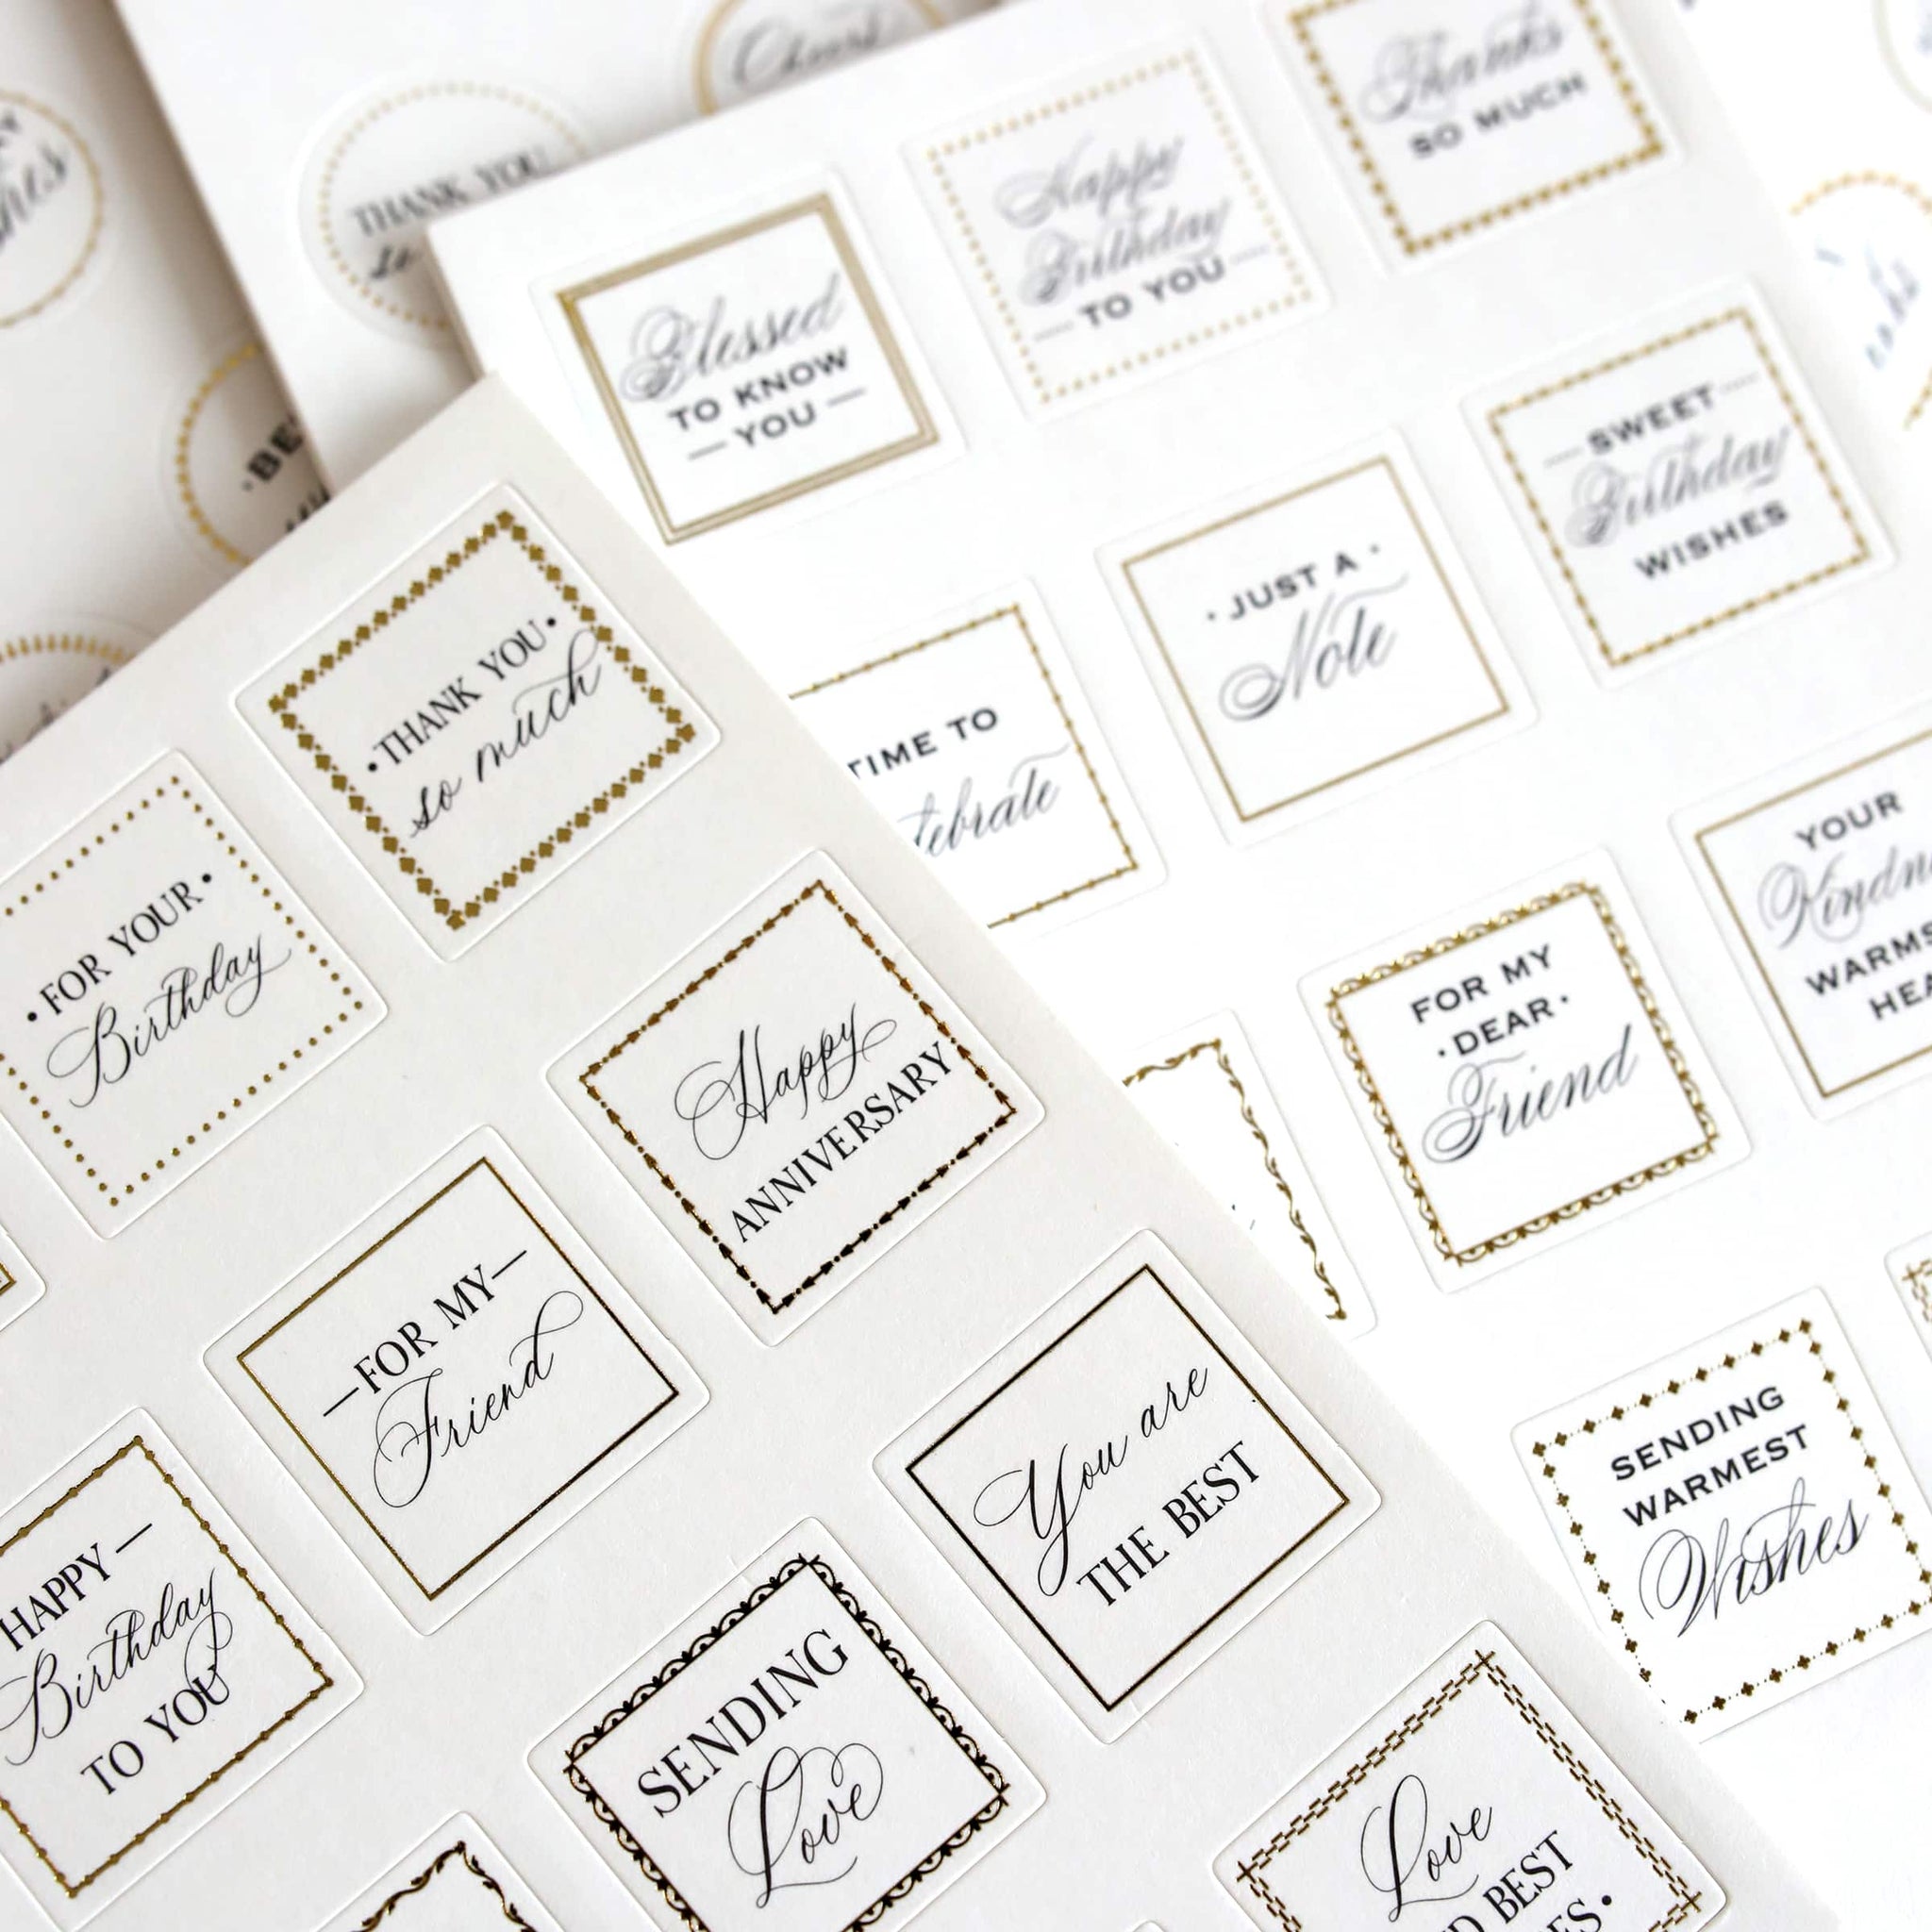 THANK YOU
so
Cheers!
Thanks
SO MUCH
Happy
Birthday
TO YOU
Blessed
TO KNOW
YOU
SWEET
Birthday
WISHES
· JUST A ·
Note
TIME TO
YOUR
FOR MY
· DEAR ·
Friend
SENDING
WARMEST
Wishes
• THANK YOU •
so much
• FOR YOUR •
Birthday
Happy
ANNIVERSARY
FOR MY
Friend
You are
THE BEST
HAPPY
Birthday
TO YOU
SENDING
Love
Love
BEST